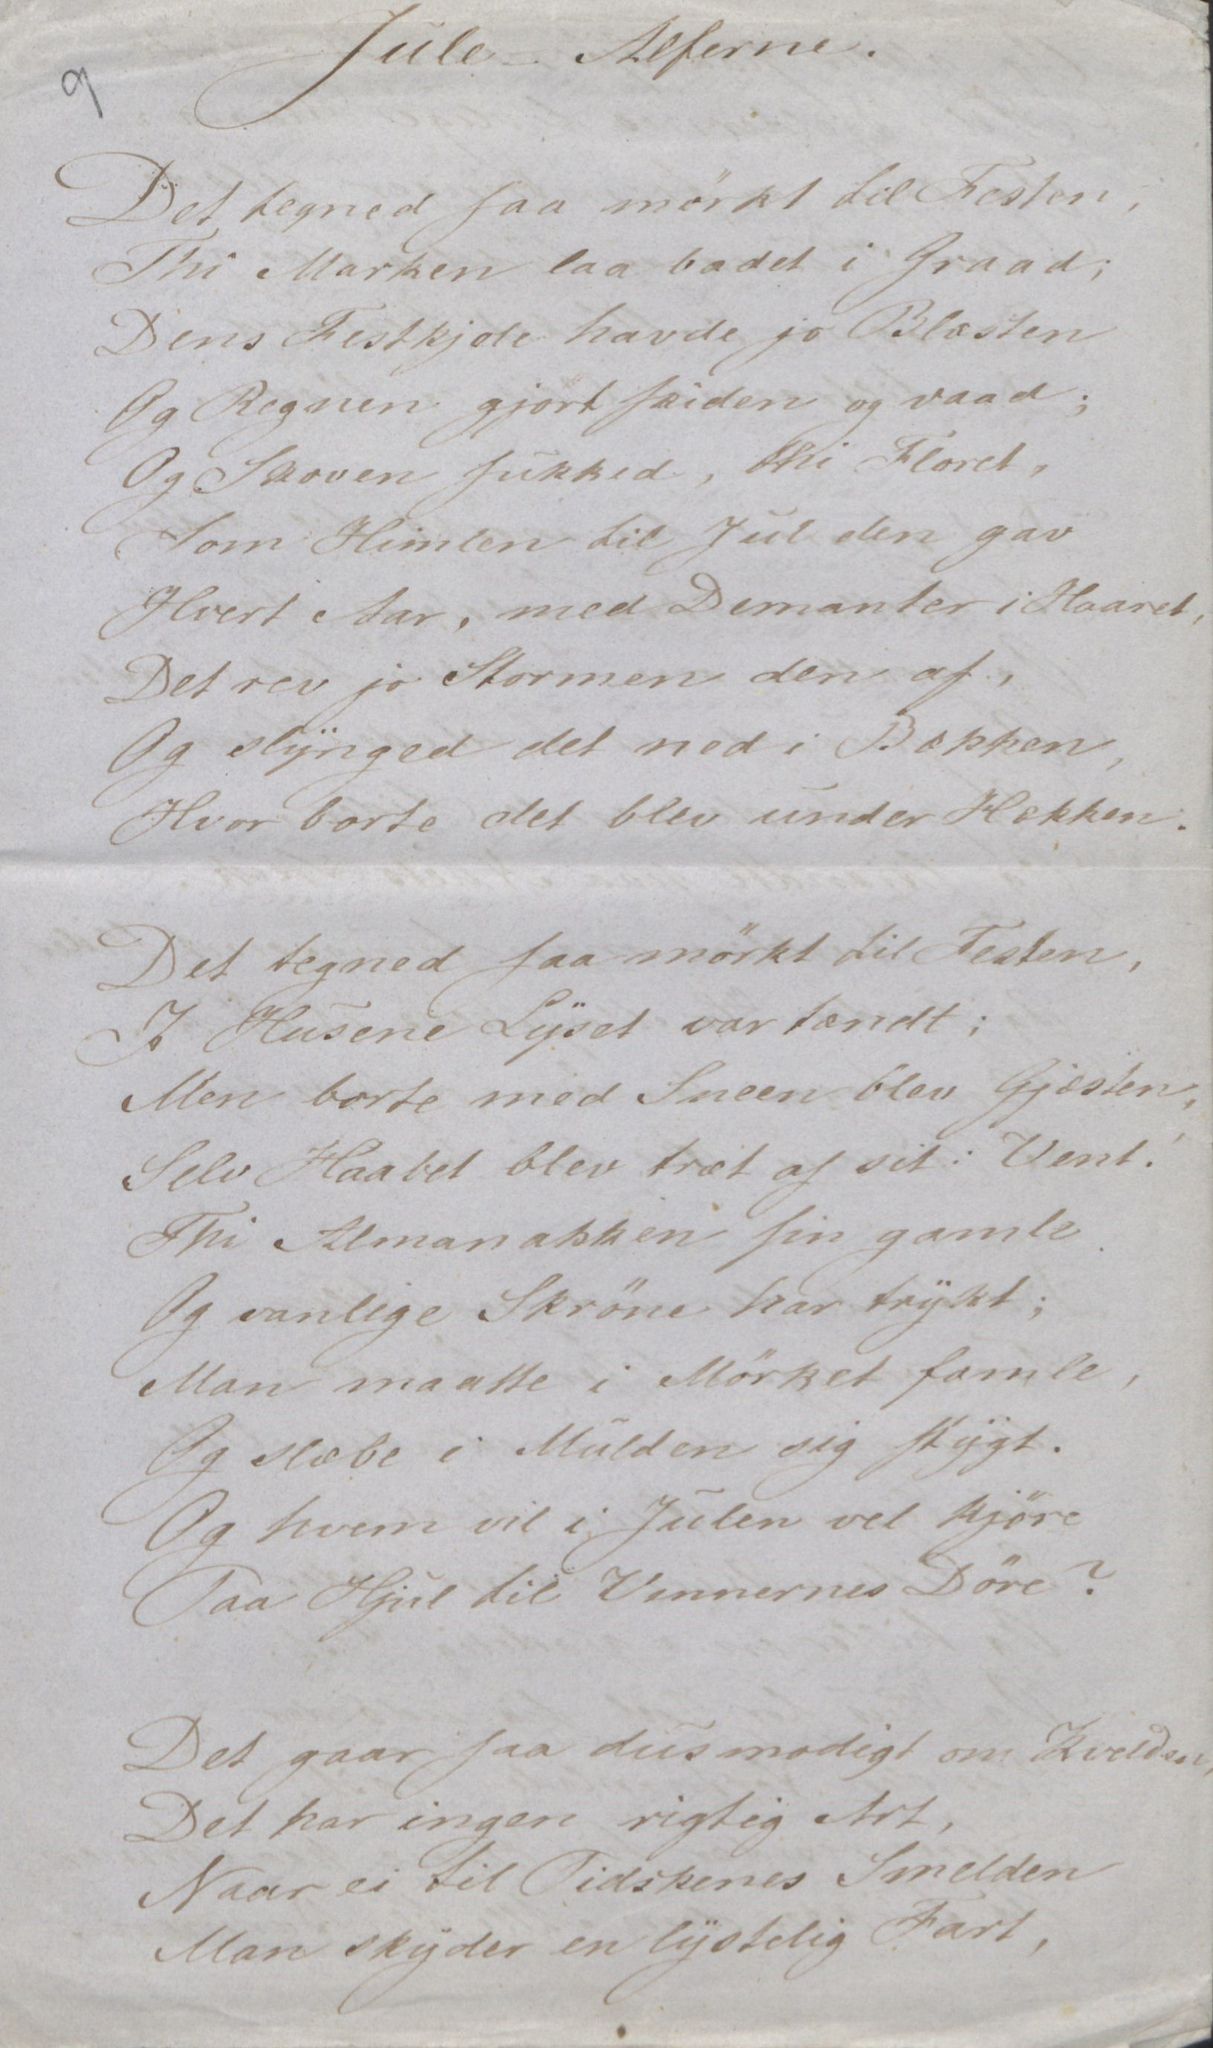 Jule-Alferne.
9
Det tegned saa mörkt til Festen,
Thi Marken laa badet i Graad;
Dens Festkjole havde jo Blæsten
Og Regnen gjort skiden og vaad;
Og Skoven sukked, thi Floret,
Som Himlen til Jul den gav
Hvert Aar, med Demanter i Haaret,
Det rev jo Stormen den af,
Og slynged det ned i Bækken,
Hvor borte det blev under Hækken.
Det tegned saa mörkt til Festen,
I Husene Lyset var tændt;
Men borte med Sneen blev Gjæsten,
Selv Haabet blev træt af sit: Vent!
Thi Almanakken sin gamle
Og vanlige Skröne har trykt;
Man maatte i Mörket famle,
Og slæbe i Mulden sig stygt.
Og hvem vil i Julen vel kjöre
Paa Hjul til Vennernes Döre?
Det gaar saa dusmodigt om Kvelden,
Det har ingen rigtig Art,
Naar ei til Pidskenes Smelden
Man skyder en lystelig Fart,